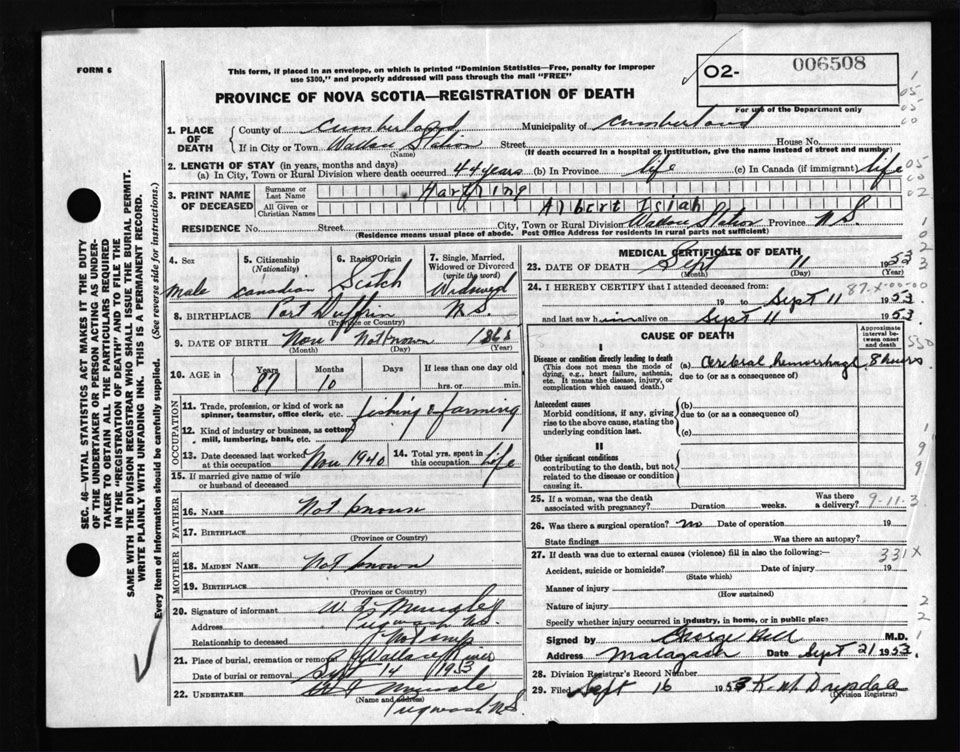 FORM 6
This form, if placed in an envelope, on which is printed "Dominion Statistics—Free, penalty for improper
use $300," and properly addressed will pass through the mail "FREE"
O2- 006508
For use of the Department only
PROVINCE OF NOVA SCOTIA—REGISTRATION OF DEATH
1. PLACE OF DEATH
County of Cumberland Municipality of Cumberland
If in City or Town Wallace Station Street House No.
(Name) (If death occurred in a hospital or institution, give the name instead of street and number)
2. LENGTH OF STAY (in years, months and days)
(a) In City, Town or Rural Division where death occurred 44 years (b) In Province life (c) In Canada (if immigrant) life
3. PRINT NAME OF DECEASED
Surname or Last Name Hartling
All Given or Christian Names Albert Isiah
RESIDENCE No. Street City, Town or Rural Division Wallace Station Province N S.
(Residence means usual place of abode. Post Office Address for residents in rural parts not sufficient)
4. Sex
Male
5. Citizenship
(Nationality)
Canadian
6. Racial Origin
Scotch
7. Single, Married,
Widowed or Divorced
(write the word)
Widowed
8. BIRTHPLACE Port Dufferin N S.
(Province or Country)
9. DATE OF BIRTH Nov Not known
(Month) (Day) (Year)
10. AGE in Years Months Days If less than one day old
87 10 hrs. or min.
OCCUPATION
11. Trade, profession, or kind of work as
spinner, teamster, office clerk, etc. fishing & farming
12. Kind of industry or business, as cotton
mill, lumbering, bank, etc.
13. Date deceased last worked
at this occupation Nov 1940
14. Total yrs. spent in
this occupation Life
15. If married give name of wife
or husband of deceased
FATHER
16. NAME Not known
17. BIRTHPLACE
(Province or Country)
MOTHER
18. MAIDEN NAME Not known
19. BIRTHPLACE
(Province or Country)
20. Signature of informant
Address Pugwash N.S.
Relationship to deceased
21. Place of burial, cremation or removal Wallace River
Date of burial or removal Sept 14 1953
22. UNDERTAKER
(Name and address)
Pugwash N.S.
MEDICAL CERTIFICATE OF DEATH
23. DATE OF DEATH Sept 11 1953
(Month) (Day) (Year)
24. I HEREBY CERTIFY that I attended deceased from:
87-x-00-00
19 to Sept 11 1953.
and last saw him alive on Sept 11 1953.
CAUSE OF DEATH
Approximate
interval be-
tween onset
and death
I
Disease or condition directly leading to death
(This does not mean the mode of
dying, e.g., heart failure, asthenia,
etc. It means the disease, injury, or
complication which caused death.)
(a) Cerebral hemorrhage 8 hours
due to (or as a consequence of)
Antecedent causes
Morbid conditions, if any, giving
rise to the above cause, stating the
underlying condition last.
(b)
due to (or as a consequence of)
(c)
II
Other significant conditions
contributing to the death, but not
related to the disease or condition
causing it.
25. If a woman, was the death
associated with pregnancy? Duration weeks. Was there
a delivery?
9-11-3
26. Was there a surgical operation? No Date of operation 19
State findings Was there an autopsy?
27. If death was due to external causes (violence) fill in also the following:—
331X
Accident, suicide or homicide? Date of injury 19
(State which)
Manner of injury
(How sustained)
Nature of injury
Specify whether injury occurred in industry, in home, or in public place
Signed by George Bell M.D.
Address Malagash Date Sept 21 1953.
28. Division Registrar's Record Number
29. Filed Sept 16 1953
(Division Registrar)
SEC. 46—VITAL STATISTICS ACT MAKES IT THE DUTY
OF THE UNDERTAKER OR PERSON ACTING AS UNDER-
TAKER TO OBTAIN ALL THE PARTICULARS REQUIRED
IN THE "REGISTRATION OF DEATH" AND TO FILE THE
SAME WITH THE DIVISION REGISTRAR WHO SHALL ISSUE THE BURIAL PERMIT.
WRITE PLAINLY WITH UNFADING INK. THIS IS A PERMANENT RECORD.
Every item of information should be carefully supplied. (See reverse side for instructions.)